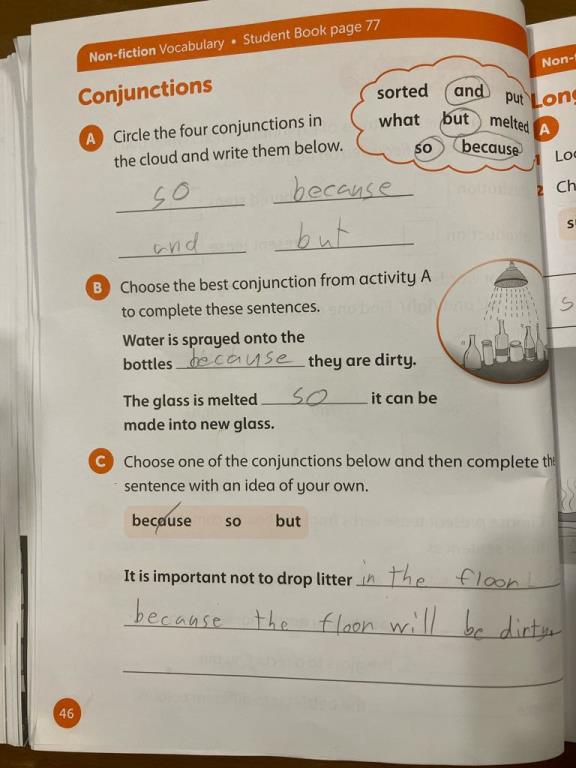 Non-fiction Vocabulary • Student Book page 77
Conjunctions
sorted and put
what but melted
so because
A Circle the four conjunctions in
the cloud and write them below.
so because
and but
B Choose the best conjunction from activity A
to complete these sentences.
Water is sprayed onto the
bottles because they are dirty.
The glass is melted so it can be
made into new glass.
C Choose one of the conjunctions below and then complete the
sentence with an idea of your own.
because so but
It is important not to drop litter in the floor
because the floor will be dirty.
46
Non-
Long
A
1 Loo
2 Ch
s
s